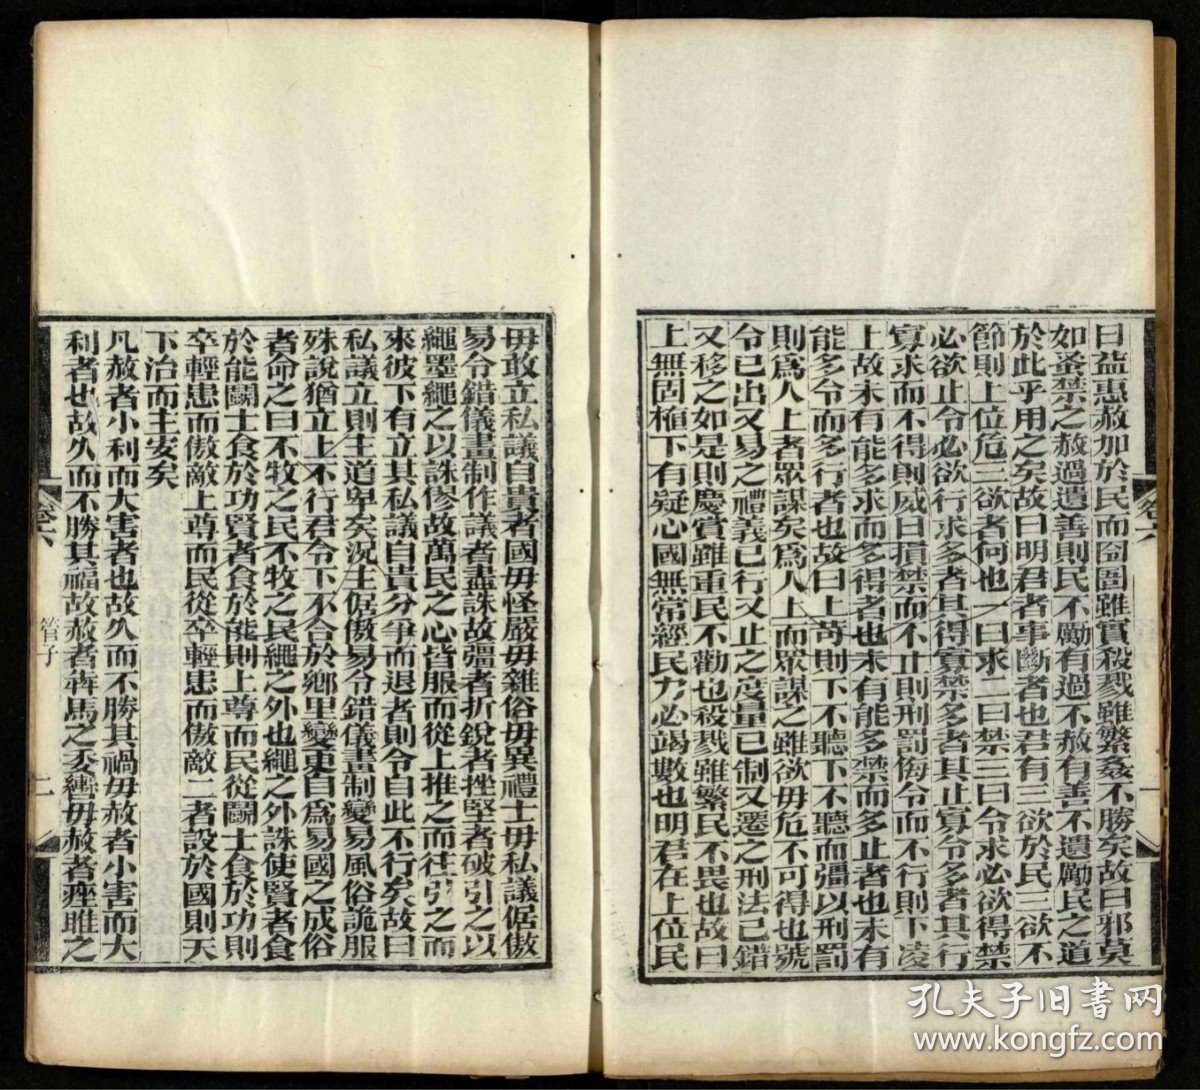 日益惠赦加於民而囹圄雖實殺戮雖繁姦不勝矣故曰邪莫
如蚤禁之赦過遺善則民不勵有過不赦有善不遺勵民之道
於此乎用之矣故曰明君者事斷者也君有三欲於民三欲不
節則上位危三欲者何也一曰求二曰禁三曰令求必欲得禁
必欲止令必欲行求多者其得寡禁多者其止寡令多者其行
寡求而不得則威日損禁而不止則刑罰侮令而不行則下凌
上故未有能多求而多得者也未有能多禁而多止者也未有
能多令而多行者也故曰上苛則下不聽下不聽而彊以刑罰
則爲人上者眾謀矣爲人上而眾謀之雖欲毋危不可得也號
令已出又易之禮義已行又止之度量已制又遷之刑法已錯
又移之如是則慶賞雖重民不勸也殺戮雖繁民不畏也故曰
上無固植下有疑心國無常經民力必竭數也明君在上位民
毋敢立私議自貴者國毋怪嚴毋雜俗毋異禮士毋私議倨傲
易令錯儀畫制作議者盡誅故彊者折銳者挫堅者破引之以
繩墨繩之以誅僇故萬民之心皆服而從上推之而往引之而
來彼下有立其私議自貴分爭而退者則令自此不行矣故曰
私議立則主道卑矣況主倨傲易令錯儀畫制變易風俗詭服
殊說猶立上不行君令下不合於鄉里變更自爲易國之成俗
者命之曰不牧之民不牧之民繩之外也繩之外誅使賢者食
於能鬭士食於功賢者食於能則上尊而民從鬭士食於功則
卒輕患而傲敵上尊而民從卒輕患而傲敵二者設於國則天
下治而主安矣
凡赦者小利而大害者也故久而不勝其禍毋赦者小害而大
利者也故久而不勝其福故赦者犇馬之委轡毋赦者痤雎之
卷六
管子
二
孔夫子旧书网
www.kongfz.com